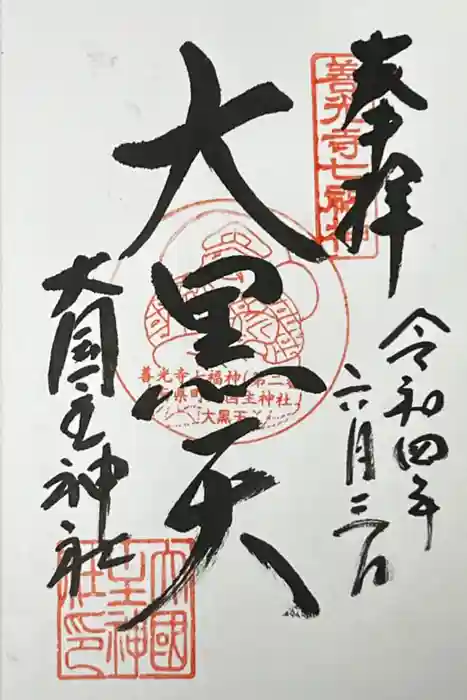 奉拝
善光寺七福神
令和四年
六月三日
大黒天
善光寺七福神(第二番
県町 国主神社
大黒天
大国主神社
大國
主神
社印